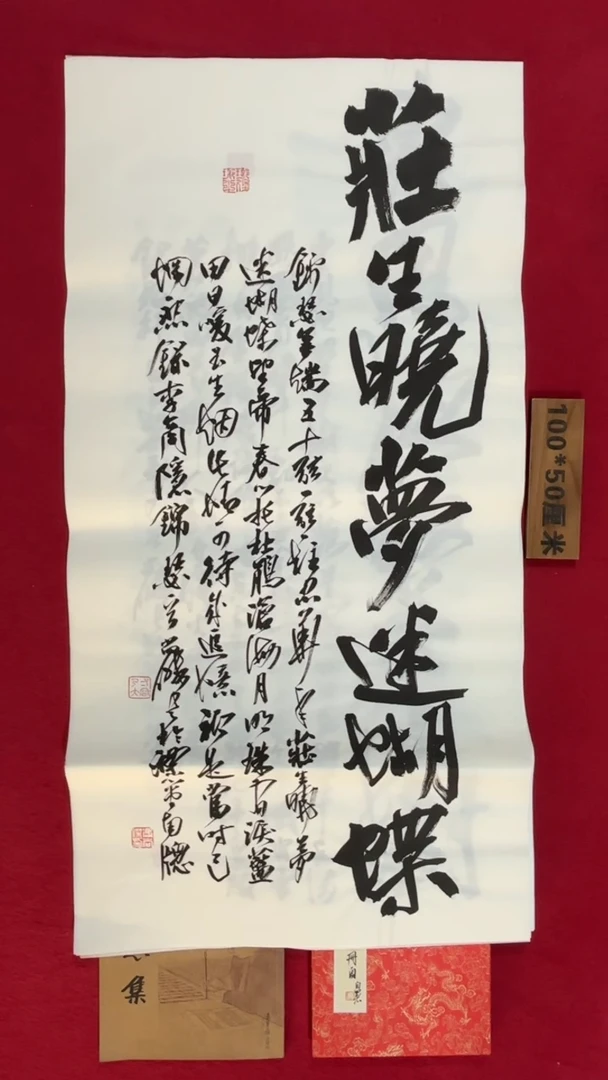 莊生曉夢迷蝴蝶
錦瑟無端五十弦一弦一柱思華年莊生曉夢
迷蝴蝶望帝春心托杜鵑滄海月明珠有淚藍
田日暖玉生烟此情可待成追憶祇是當時已
惘然錄李商隱錦瑟
100*50厘米
集